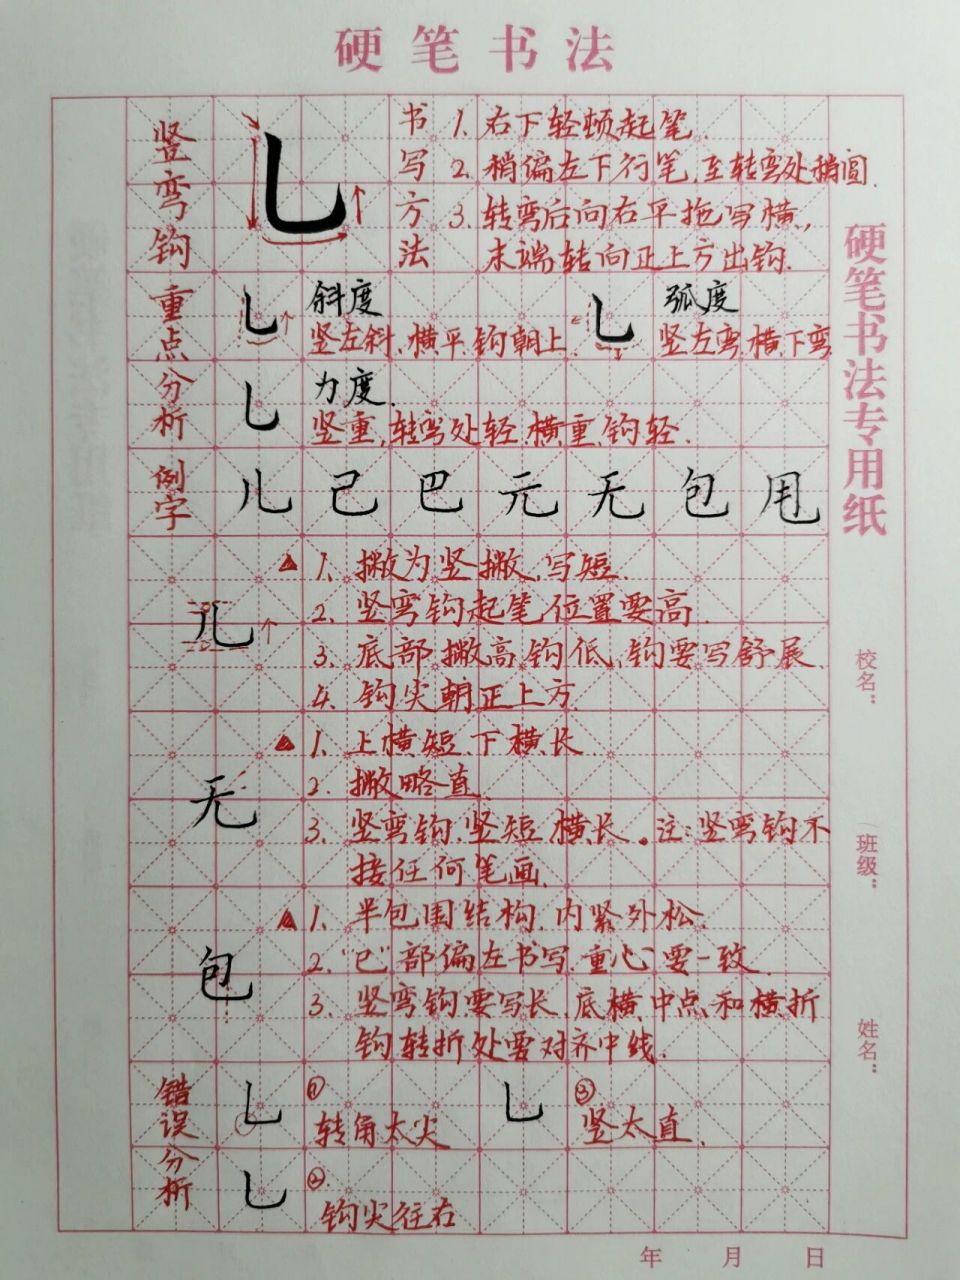 硬笔书法
竖弯钩
乚
书写方法
1. 右下轻顿起笔.
2. 稍偏左下行笔,至转弯处稍圆.
3. 转弯后向右平拖写横,
末端转向正上方出钩.
重点分析
乚 斜度
竖左斜、横平、钩朝上.
乚 弧度
竖左弯、横下弯
乚 力度.
竖重,转弯处轻、横重、钩轻.
例字
儿 己 巴 元 无 包 甩
儿
1. 撇为竖撇、写短.
2. 竖弯钩起笔位置要高.
3. 底部撇高钩低、钩要写舒展.
4. 钩尖朝正上方.
无
1. 上横短、下横长
2. 撇略直
3. 竖弯钩、竖短横长。注:竖弯钩不
接任何笔画.
包
1. 半包围结构、内紧外松.
2. “巳”部偏左书写、重心要一致.
3. 竖弯钩要写长、底横中点和横折
钩转折处要对齐中线.
错误分析
乚 ①
转角太尖
乚 ③
竖太直.
乚 ②
钩尖往右
硬笔书法专用纸
校名:
班级:
姓名:
年 月 日